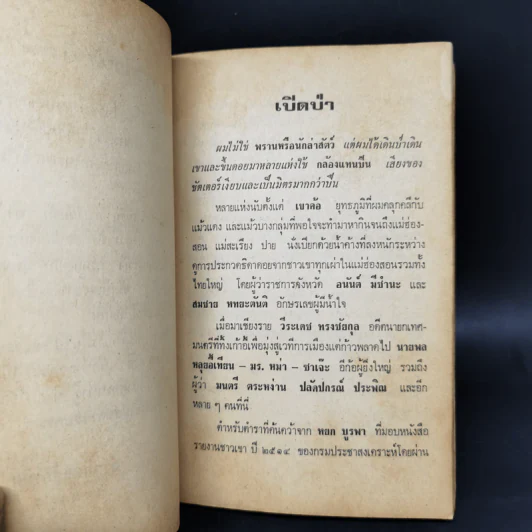 เปิดป่า
ผมไม่ใช่ พรานหรือนักล่าสัตว์ แต่ผมได้เดินป่าเดิน
เขาและขึ้นดอยมาหลายแห่งใช้ กล้องแทนปืน เสียงของ
ชัตเตอร์เงียบและเป็นมิตรมากกว่าปืน
หลายแห่งนับตั้งแต่ เขาค้อ ยุทธภูมิที่ผมคลุกคลีกับ
แม้วแดง และแม้วบางกลุ่มที่พอใจจะทำมาหากินจนถึงแม่ฮ่อง-
สอน แม่สะเรียง ปาย นั่งเปียกด้วยน้ำค้างที่ลงหนักระหว่าง
ดูการประกวดธิดาดอยจากชาวเขาทุกเผ่าในแม่ฮ่องสอนรวมทั้ง
ไทยใหญ่ โดยผู้ว่าราชการจังหวัด อนันต์ มีชำนะ และ
สมชาย พทยะตันติ อักษรเลขผู้มีน้ำใจ
เมื่อมาเชียงราย วีระเดช ทรงชัยกุล อดีตนายกเทศ-
มนตรีที่ทิ้งเก้าอี้เพื่อมุ่งสู่เวทีการเมืองแต่ก้าวพลาดไป นายพล
หลุยอี้เทียน – มร. หม่า – ชาเจ๊ะ อีก้อผู้ยิ่งใหญ่ รวมถึง
ผู้ว่า มนตรี ตระหง่าน ปลัดปกรณ์ ประพิณ และอีก
หลาย ๆ คนที่นี่
สำหรับตำราที่ค้นคว้าจาก หยก บูรพา ที่มอบหนังสือ
รายงานชาวเขา ปี ๒๕๑๔ ของกรมประชาสงเคราะห์โดยผ่าน